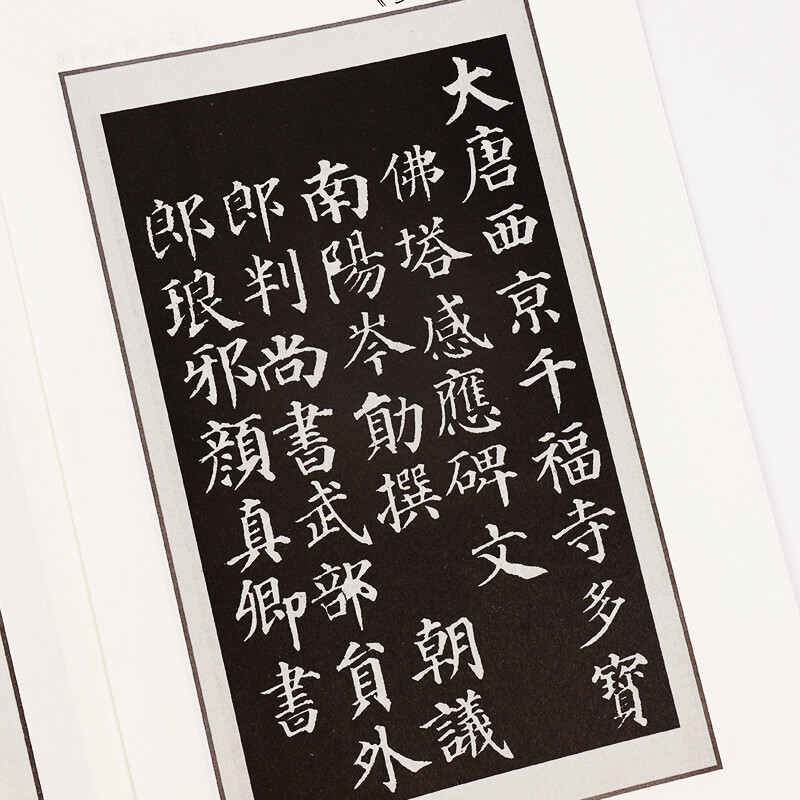 大唐西京千福寺多寶
佛塔感應碑文
南陽岑勛撰 朝議
郎判尚書武部員外
郎琅邪顏真卿書